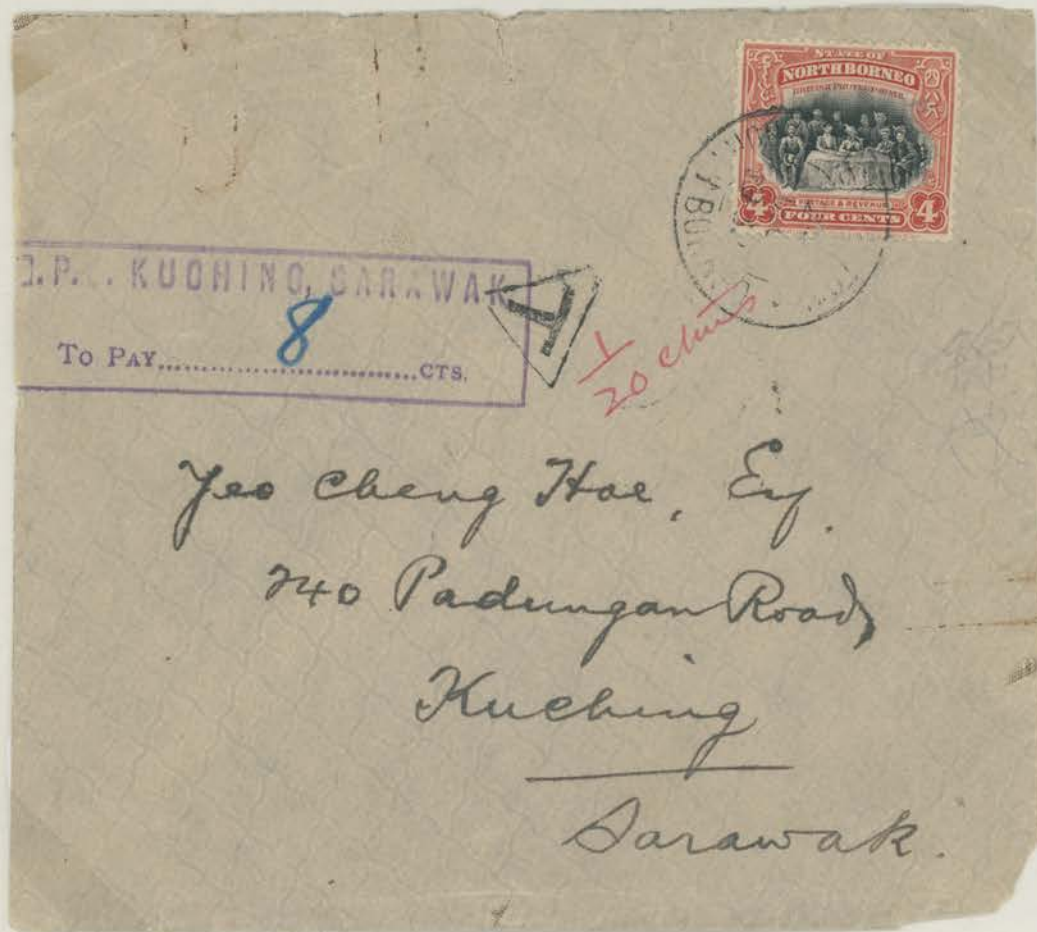 STATE OF
NORTH BORNEO
BRITISH PROTECTORATE
POSTAGE & REVENUE
4 FOUR CENTS 4
.P. . KUCHING, SARAWAK
TO PAY..............8..............CTS.
T
1
20 ctms
Yeo Cheng Hoe, Esq.
240 Padungan Road,
Kuching
Sarawak.